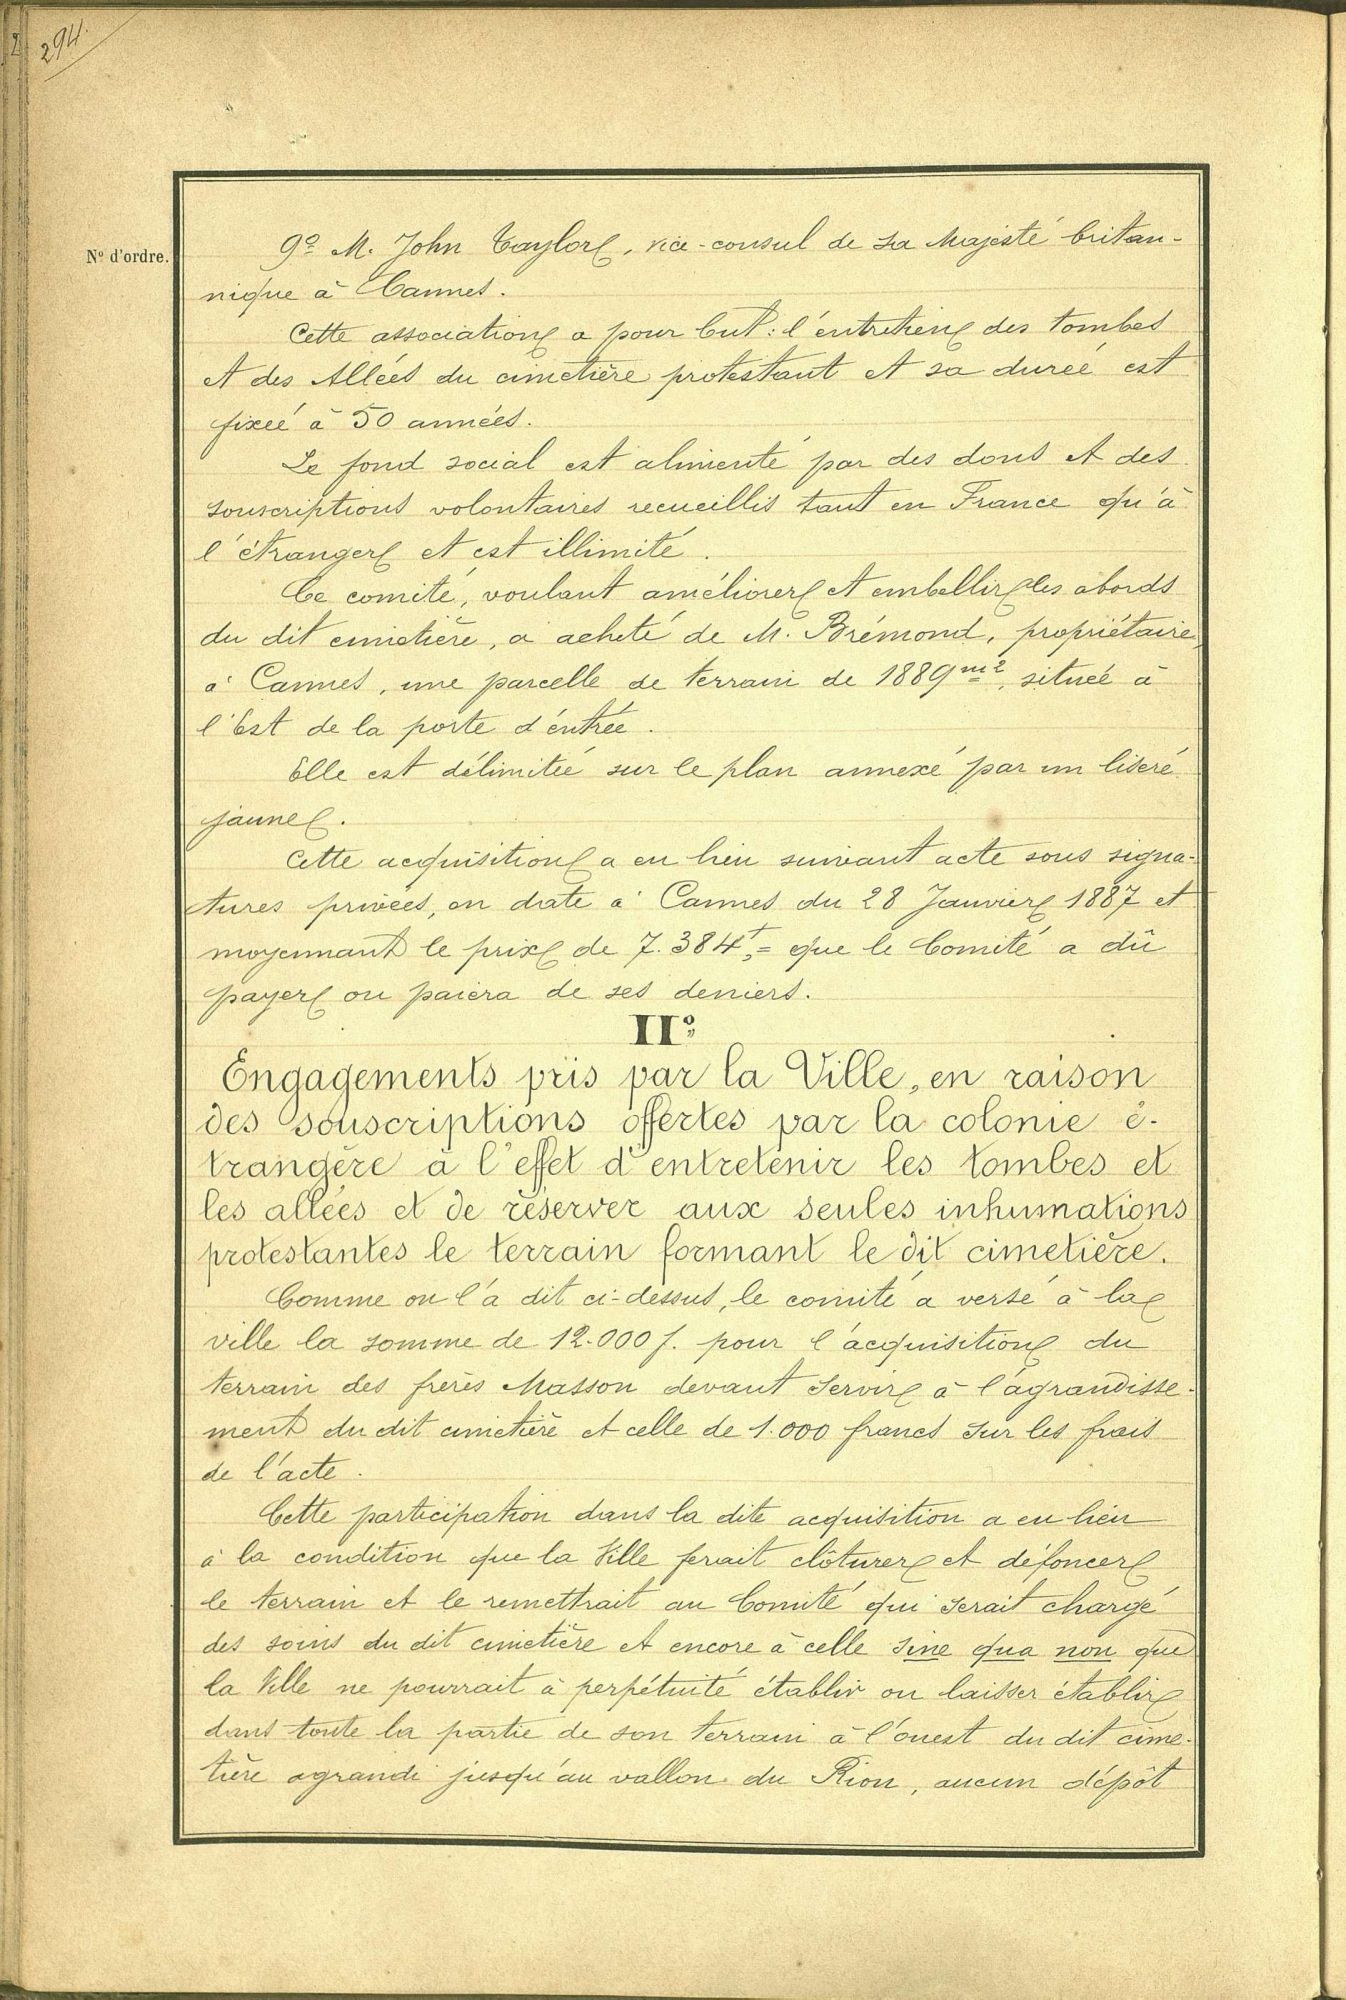 294.
N° d'ordre.
9° M. John Taylor, vice-consul de sa Majesté britan-
nique à Cannes.
Cette association a pour but : l'entretien des tombes
et des Allées du cimetière protestant et sa durée est
fixée à 50 années.
Le fond social est alimenté par des dons et des
souscriptions volontaires recueillis tant en France qu'à
l'étranger et est illimité.
Ce comité, voulant améliorer et embellir les abords
du dit cimetière, a acheté de M. Brémond, propriétaire
à Cannes, une parcelle de terrain de 1889 m2, située à
l'Est de la porte d'entrée.
Elle est délimitée sur le plan annexé par un liseré
jaune.
Cette acquisition a eu lieu suivant acte sous signa-
tures privées, en date à Cannes du 28 Janvier 1887 et
moyennant le prix de 7.384f,= que le Comité a dû
payer ou paiera de ses deniers.
II°
Engagements pris par la Ville, en raison
des souscriptions offertes par la colonie é-
trangère à l'effet d'entretenir les tombes et
les allées et de réserver aux seules inhumations
protestantes le terrain formant le dit cimetière.
Comme on l'a dit ci-dessus, le comité a versé à la
ville la somme de 12.000 f. pour l'acquisition du
terrain des frères Masson devant servir à l'agrandisse-
ment du dit cimetière et celle de 1.000 francs sur les frais
de l'acte.
Cette participation dans la dite acquisition a eu lieu
à la condition que la Ville ferait clôturer et défoncer
le terrain et le remettrait au Comité qui serait chargé
des soins du dit cimetière et encore à celle sine qua non que
la Ville ne pourrait à perpétuité établir ou laisser établir
dans toute la partie de son terrain à l'ouest du dit cime-
tière agrandi jusqu'au vallon du Riou, aucun dépôt